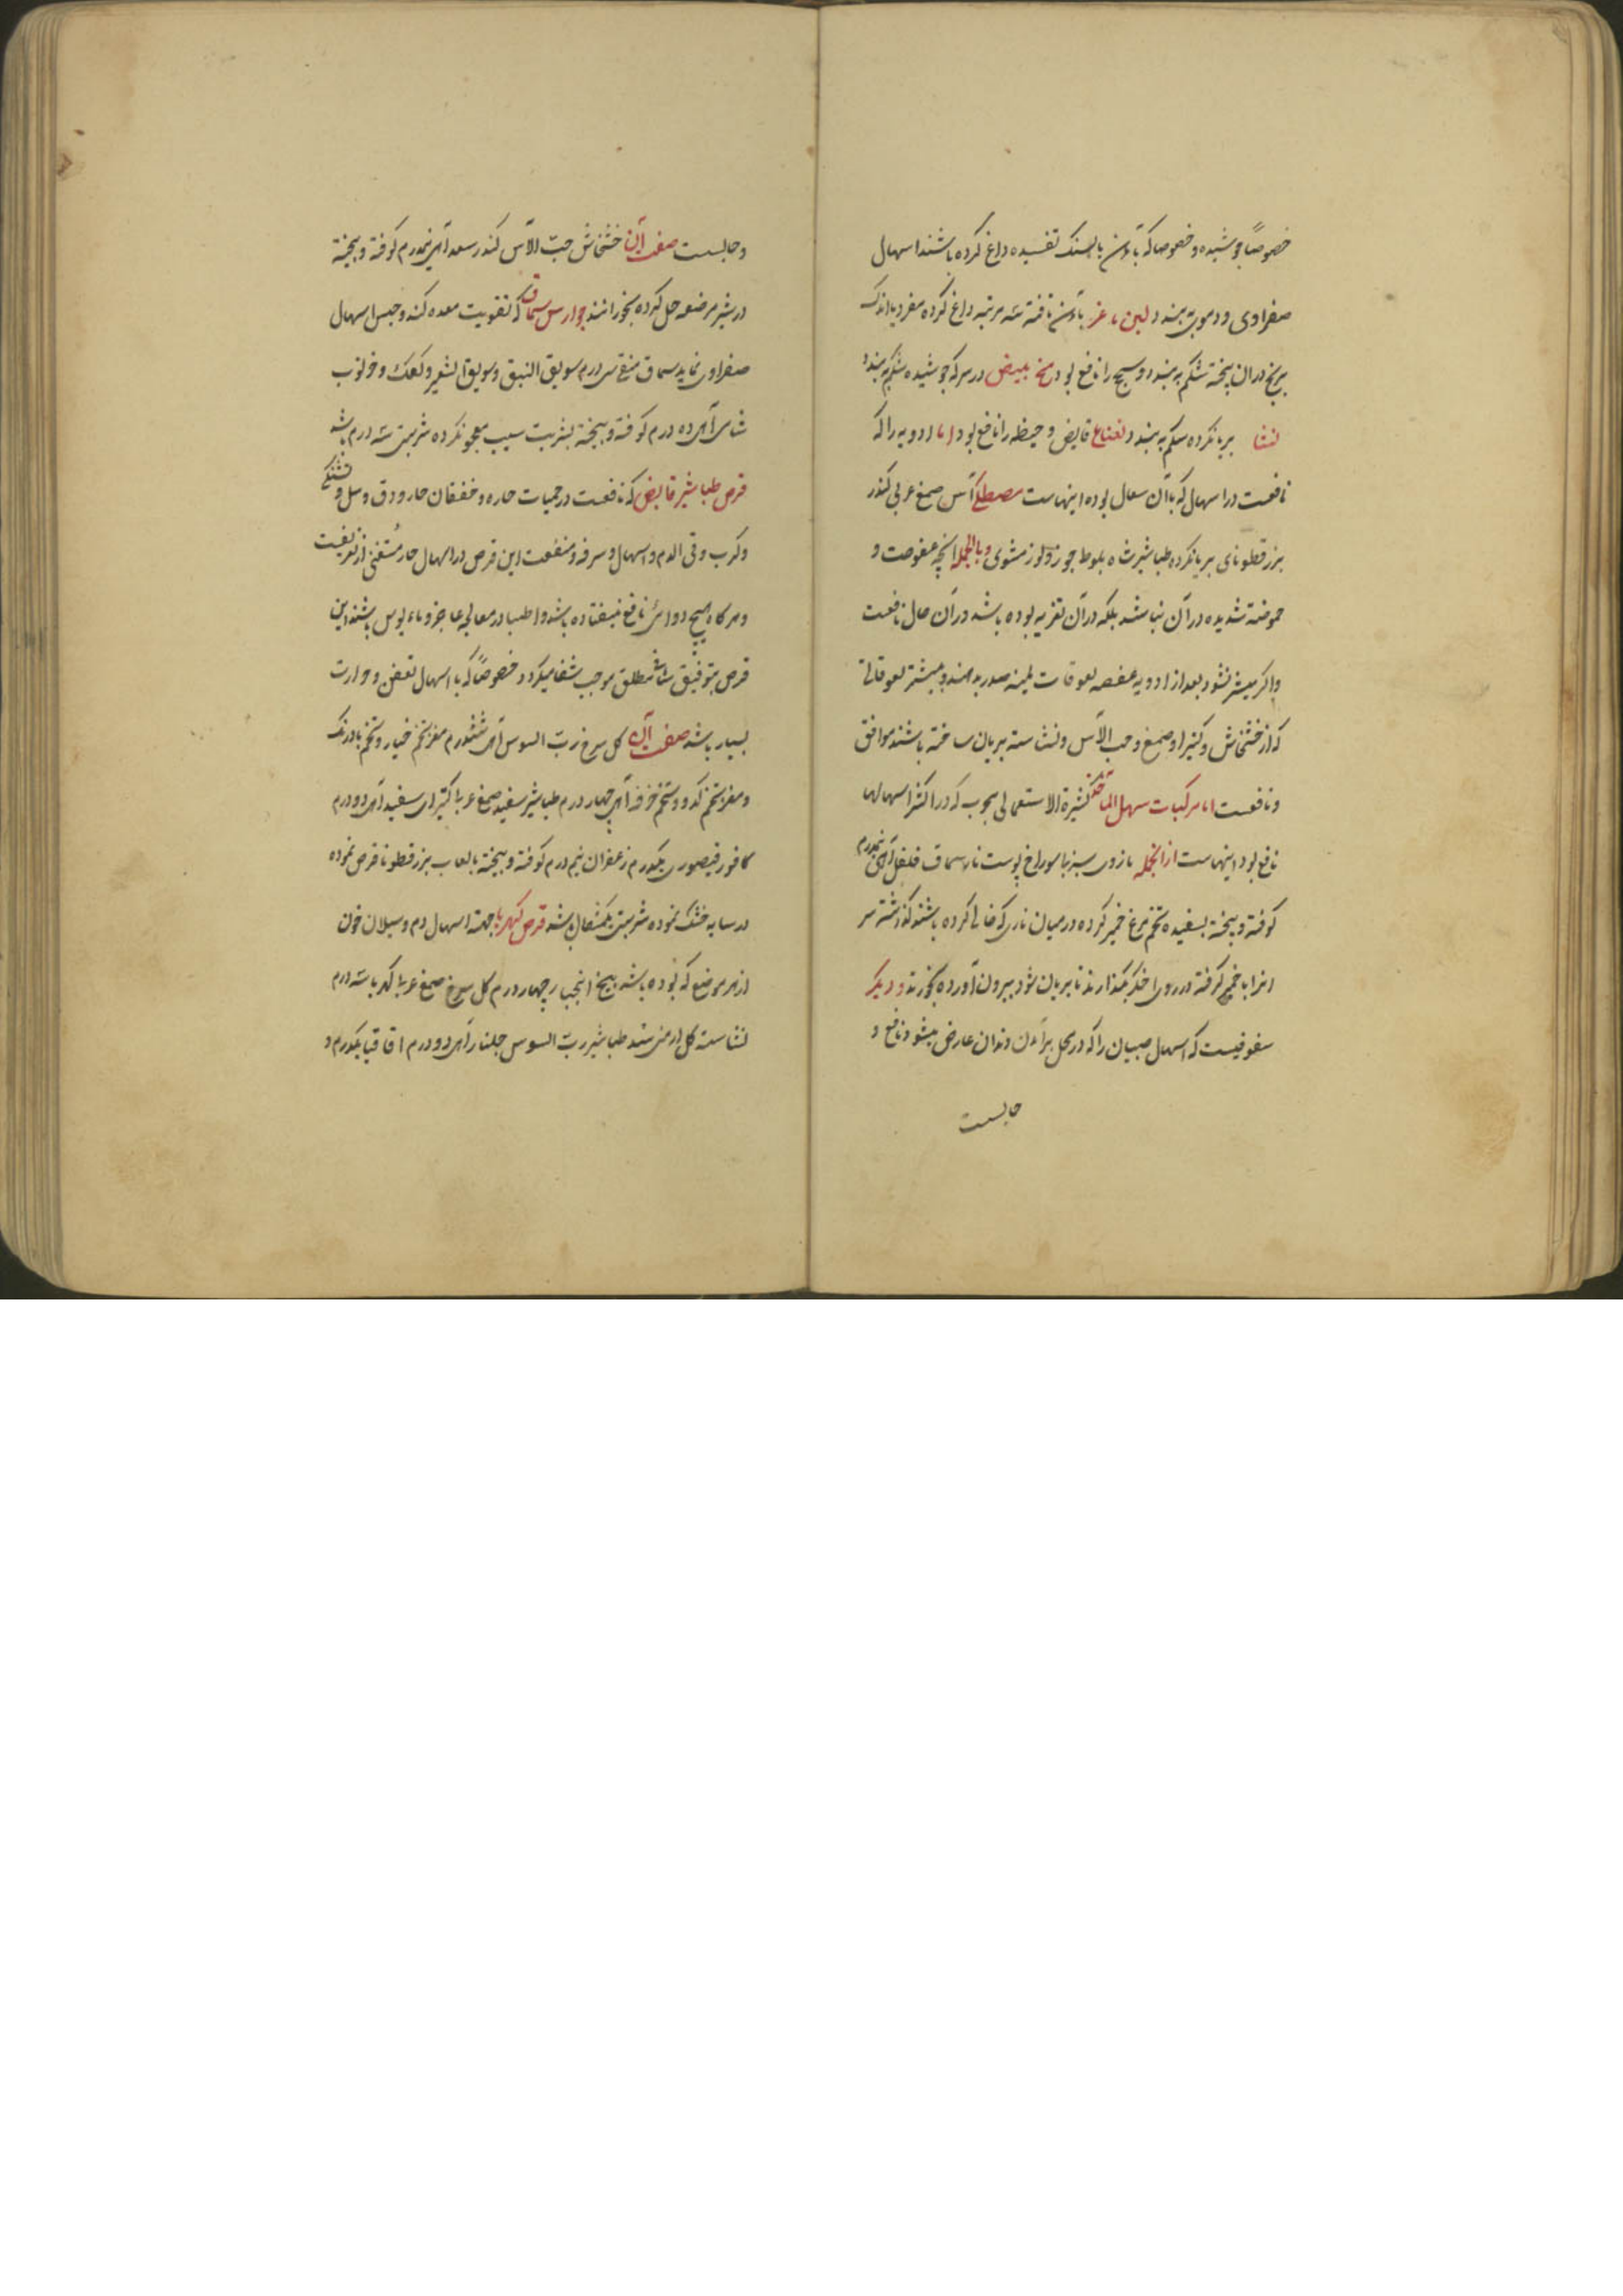 خصوصاً جوشیده و خصوصا که بآهن یا بسنک تفسیده داغ کرده باشند اسهال
صفراوی و دموی به بندد لبن ماعز بآهن تافته سه مرتبه داغ کرده مفرد یا اندک
برنج در ان پخته شکم به بندد و سحج را نافع بود مخ بیض در سرکه جوشیده شکم به بندد
نشا بریانکرده شکم به بندد نعناع قابض و هیضه را نافع بود اما ادویه را که
نافعست در اسهال که با آن سعال بوده اینهاست مصطکی آس صمغ عربی کندر
بزر قطونای بریانکرده طباشیر شاه بلوط جوز و لوز مشوی و بالجمله انچه عفوصت و
حموضة شدیده در آن نباشد بلکه در آن تغریه بوده باشد در آن حال نافعست
و اکر میسر نشود بعد از ادویه عفصه لعوقات لمینه صدر بدهند و بیشتر لعوقاتی
که از خشخاش و کتیرا و صمغ و حب الآس و نشاسته بریان ساخته باشند موافق
و نافعست اما مرکبات سهل المآخذ کثیرة الاستعمالی مجوب که در اکثر اسهالها
نافع بود اینهاست از انجمله مازوی سبز بیسوراخ پوست نار سماق فلفل از هریک نیمدرم
کوفته و بیخته بسفیده تخم مرغ خمیر کرده در میان ناری که خالی کرده باشند کذاشته سر
انرا با خمیر کرفته در روی اخکر بکذارند تا بریان شود بیرون آورده بخورند و دیکر
سفوفیست که اسهال صبیان را که در محل برآمدن دندان عارض میشود نافع و
حابست
و حابست صفت آن خشخاش حبّ الآس کندر سعد از هریک نیمدرم کوفته و بیخته
در شیر مرضعه حل کرده بخورانند جوارش سماق که تقویت معده کند و حبس اسهال
صفراوی نماید سماق منقی سی درم سویق النبق و سویق الشعیر و کعک و خرنوب
شامی از هریک ده درم کوفته و بیخته بشربت سیب معجون کرده شربتی سه درم باشد
قرص طباشیر قابض که نافعست در حمیات حاره و خفقان حار و دق و سل و تشنکی
و کرب و قی الدم و اسهال و سرفه و منفعت این قرص در اسهال حار مستغنی از تعریفست
و هر کاه هیچ دوائی نافع نیفتاده باشد و اطبا در معالجه عاجز و مایوس باشند این
قرص بتوفیق شافی مطلق موجب شفا میکردد خصوصاً که با اسهال تعفن و حرارت
بسیار باشد صفت آن کل سرخ ربّ السوس از هریک ششدرم مغز تخم خیار و تخم بادرنک
و مغز تخم کدو و تخم خرفه از هریک چهار درم طباشیر سفید صمغ عربی کتیرای سفید از هریک دو درم
کافور قیصوری یکدرم زعفران نیم درم کوفته و بیخته بالعاب بزر قطونا قرص نموده
در سایه خشک نموده شربتی یکمثقال باشد قرص کهربا جهة اسهال دم و سیلان خون
از هر موضع که بوده باشد بیخ انجبار چهار درم کل سرخ صمغ عربی کهربا سه درم
نشاسته کل ارمنی طباشیر ربّ السوس جلنار از هریک دو درم اقاقیا یکدرم و